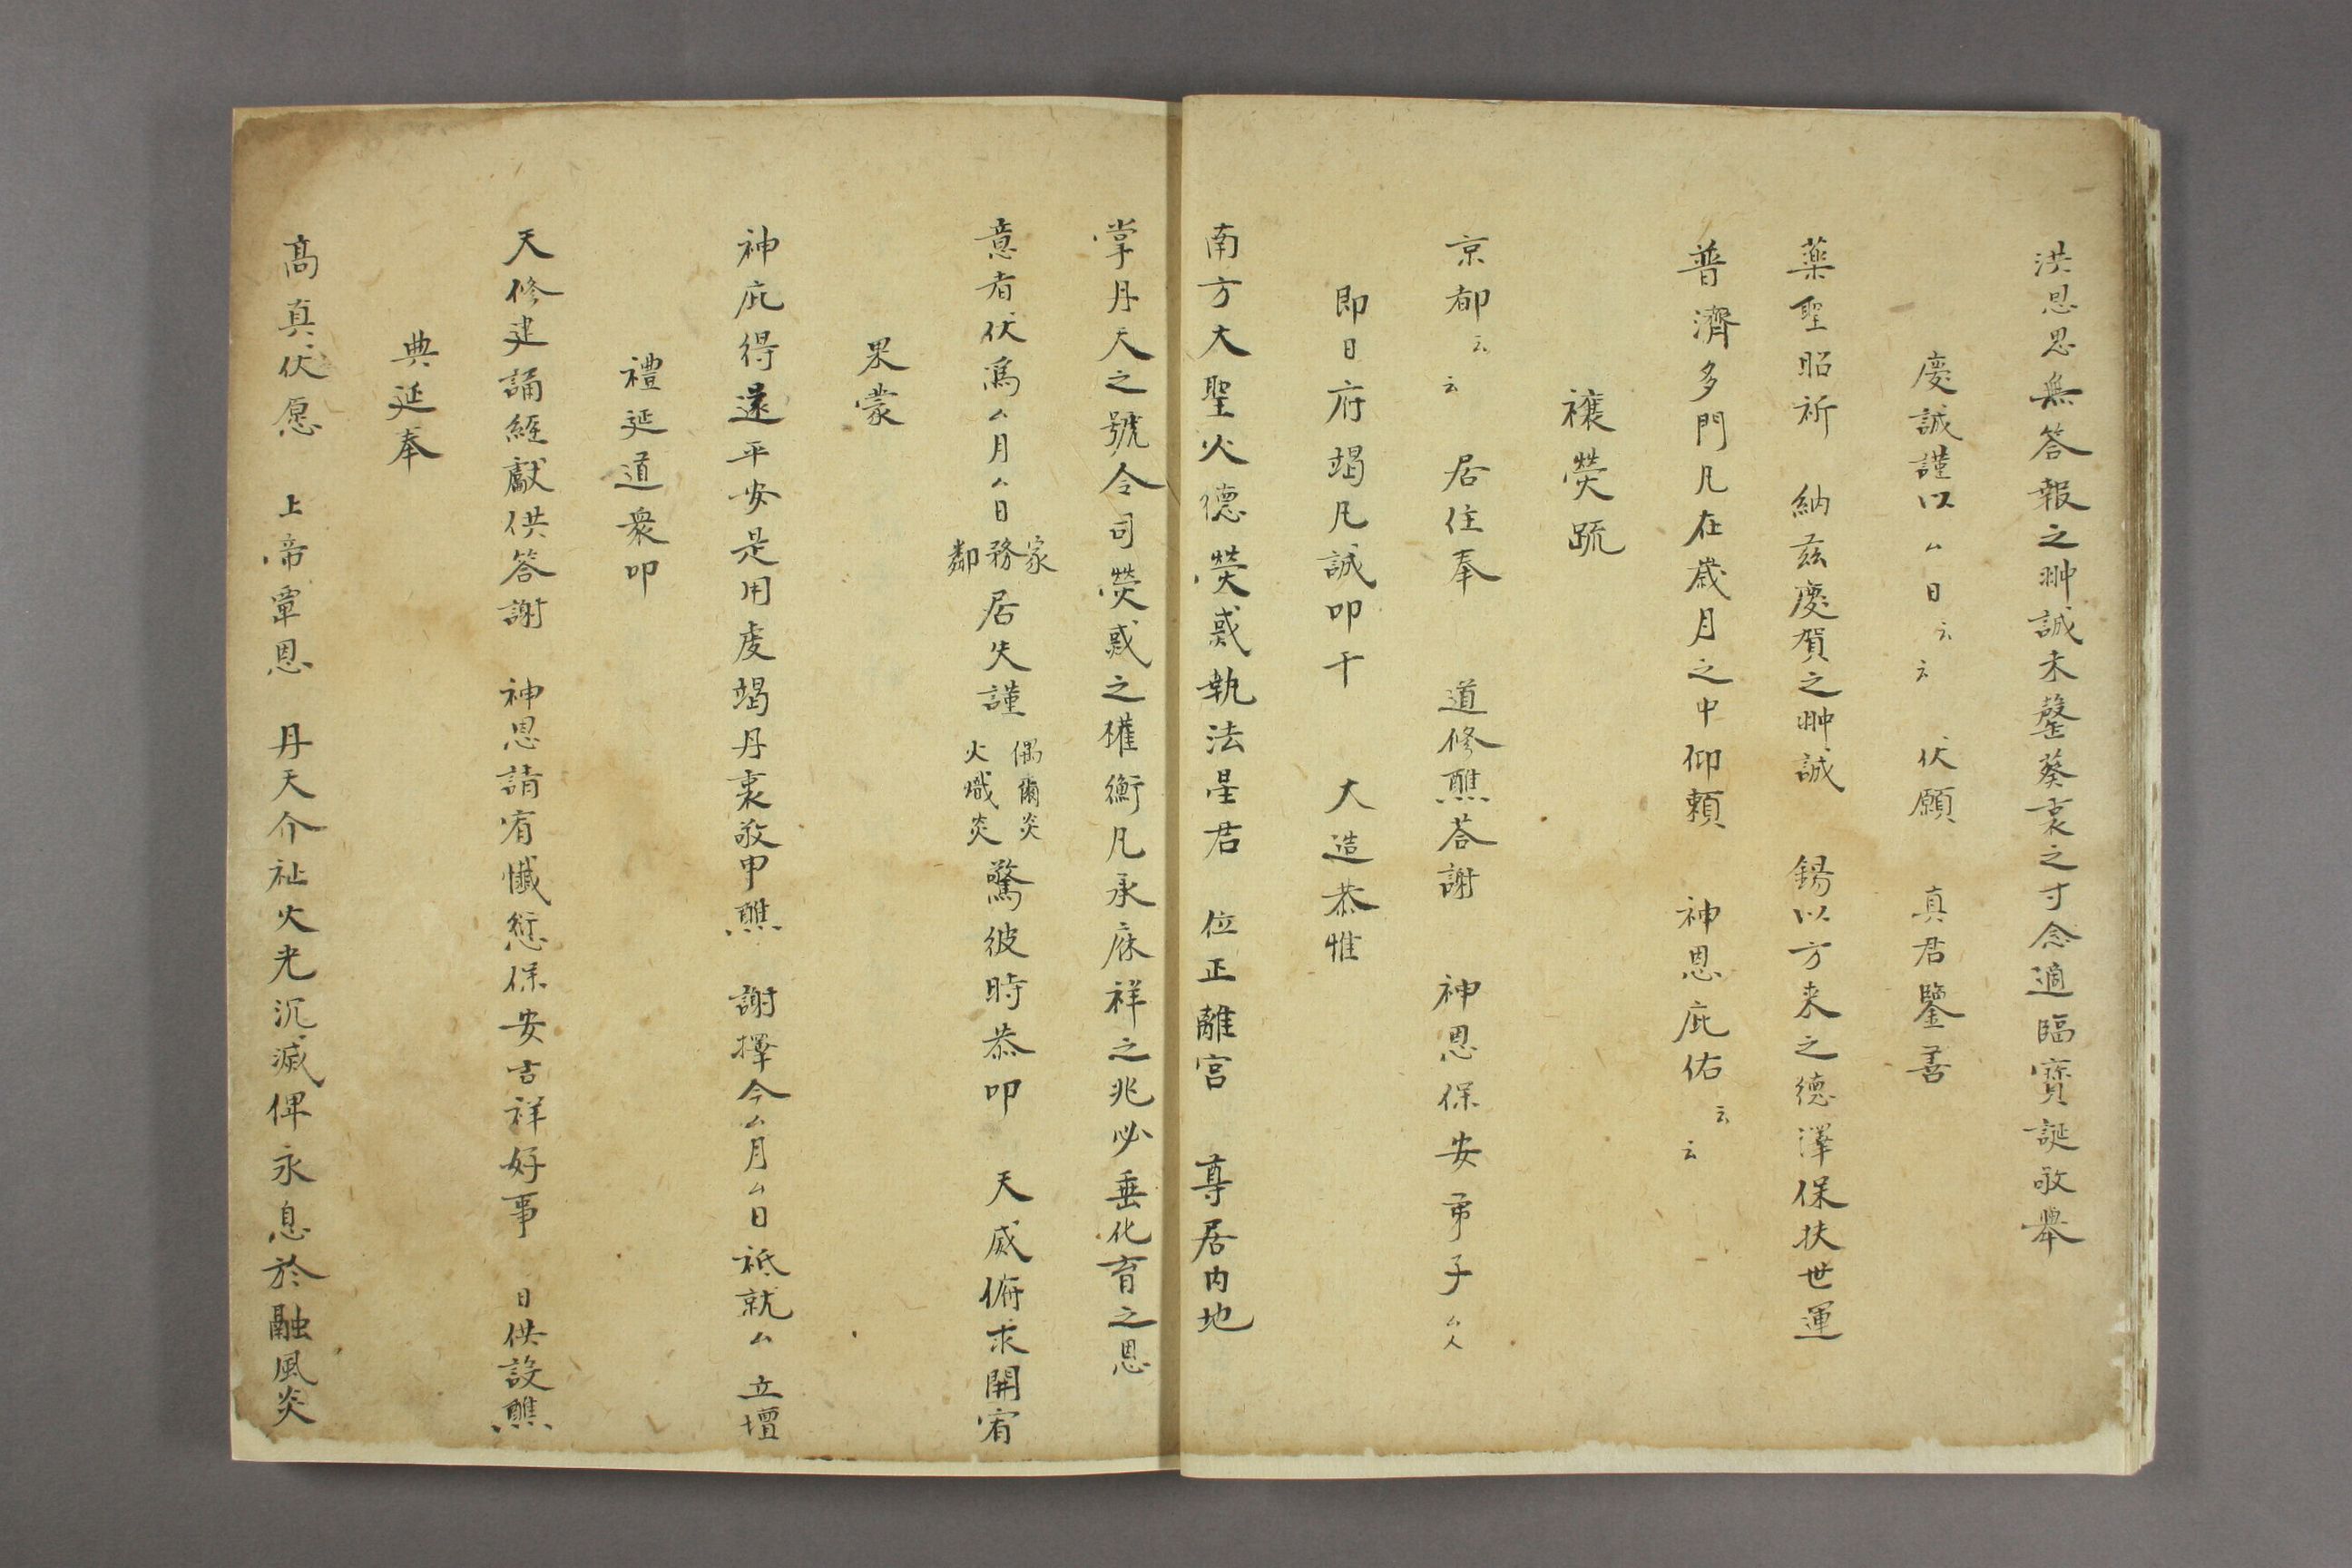 洪恩恩無答報之翀誠未罄葵衷之寸念適臨寶誕敬舉
慶誠謹以厶日云云 伏願 真君鑒善
藥聖昭祈 納茲慶賀之翀誠 錫以方来之德澤保扶世運
普濟多門凡在歲月之中仰頼 神恩庇佑云云
禳熒疏
京都云云 居住奉 道修醮荅謝 神恩保安弟子厶人
即日府竭凡誠叩干 大造恭惟
南方大聖火德熒惑執法星君 位正離宮 尊居内地
掌丹天之號令司熒惑之權衡凡承庥祥之兆必垂化育之恩
意者伏爲厶月厶日家務鄰居失謹偶爾炎火熾炎驚彼時恭叩 天威俯求開宥
果蒙
神庇得遂平安是用虔竭丹衷敬申醮 謝擇今厶月厶日祗就厶 立壇
禮延道衆叩
天修建誦經獻供答謝 神恩請宥懺愆保安吉祥好事 日供設醮
典延奉
髙真伏愿 上帝覃恩 丹天介祉火光沉滅俾永息於融風炎